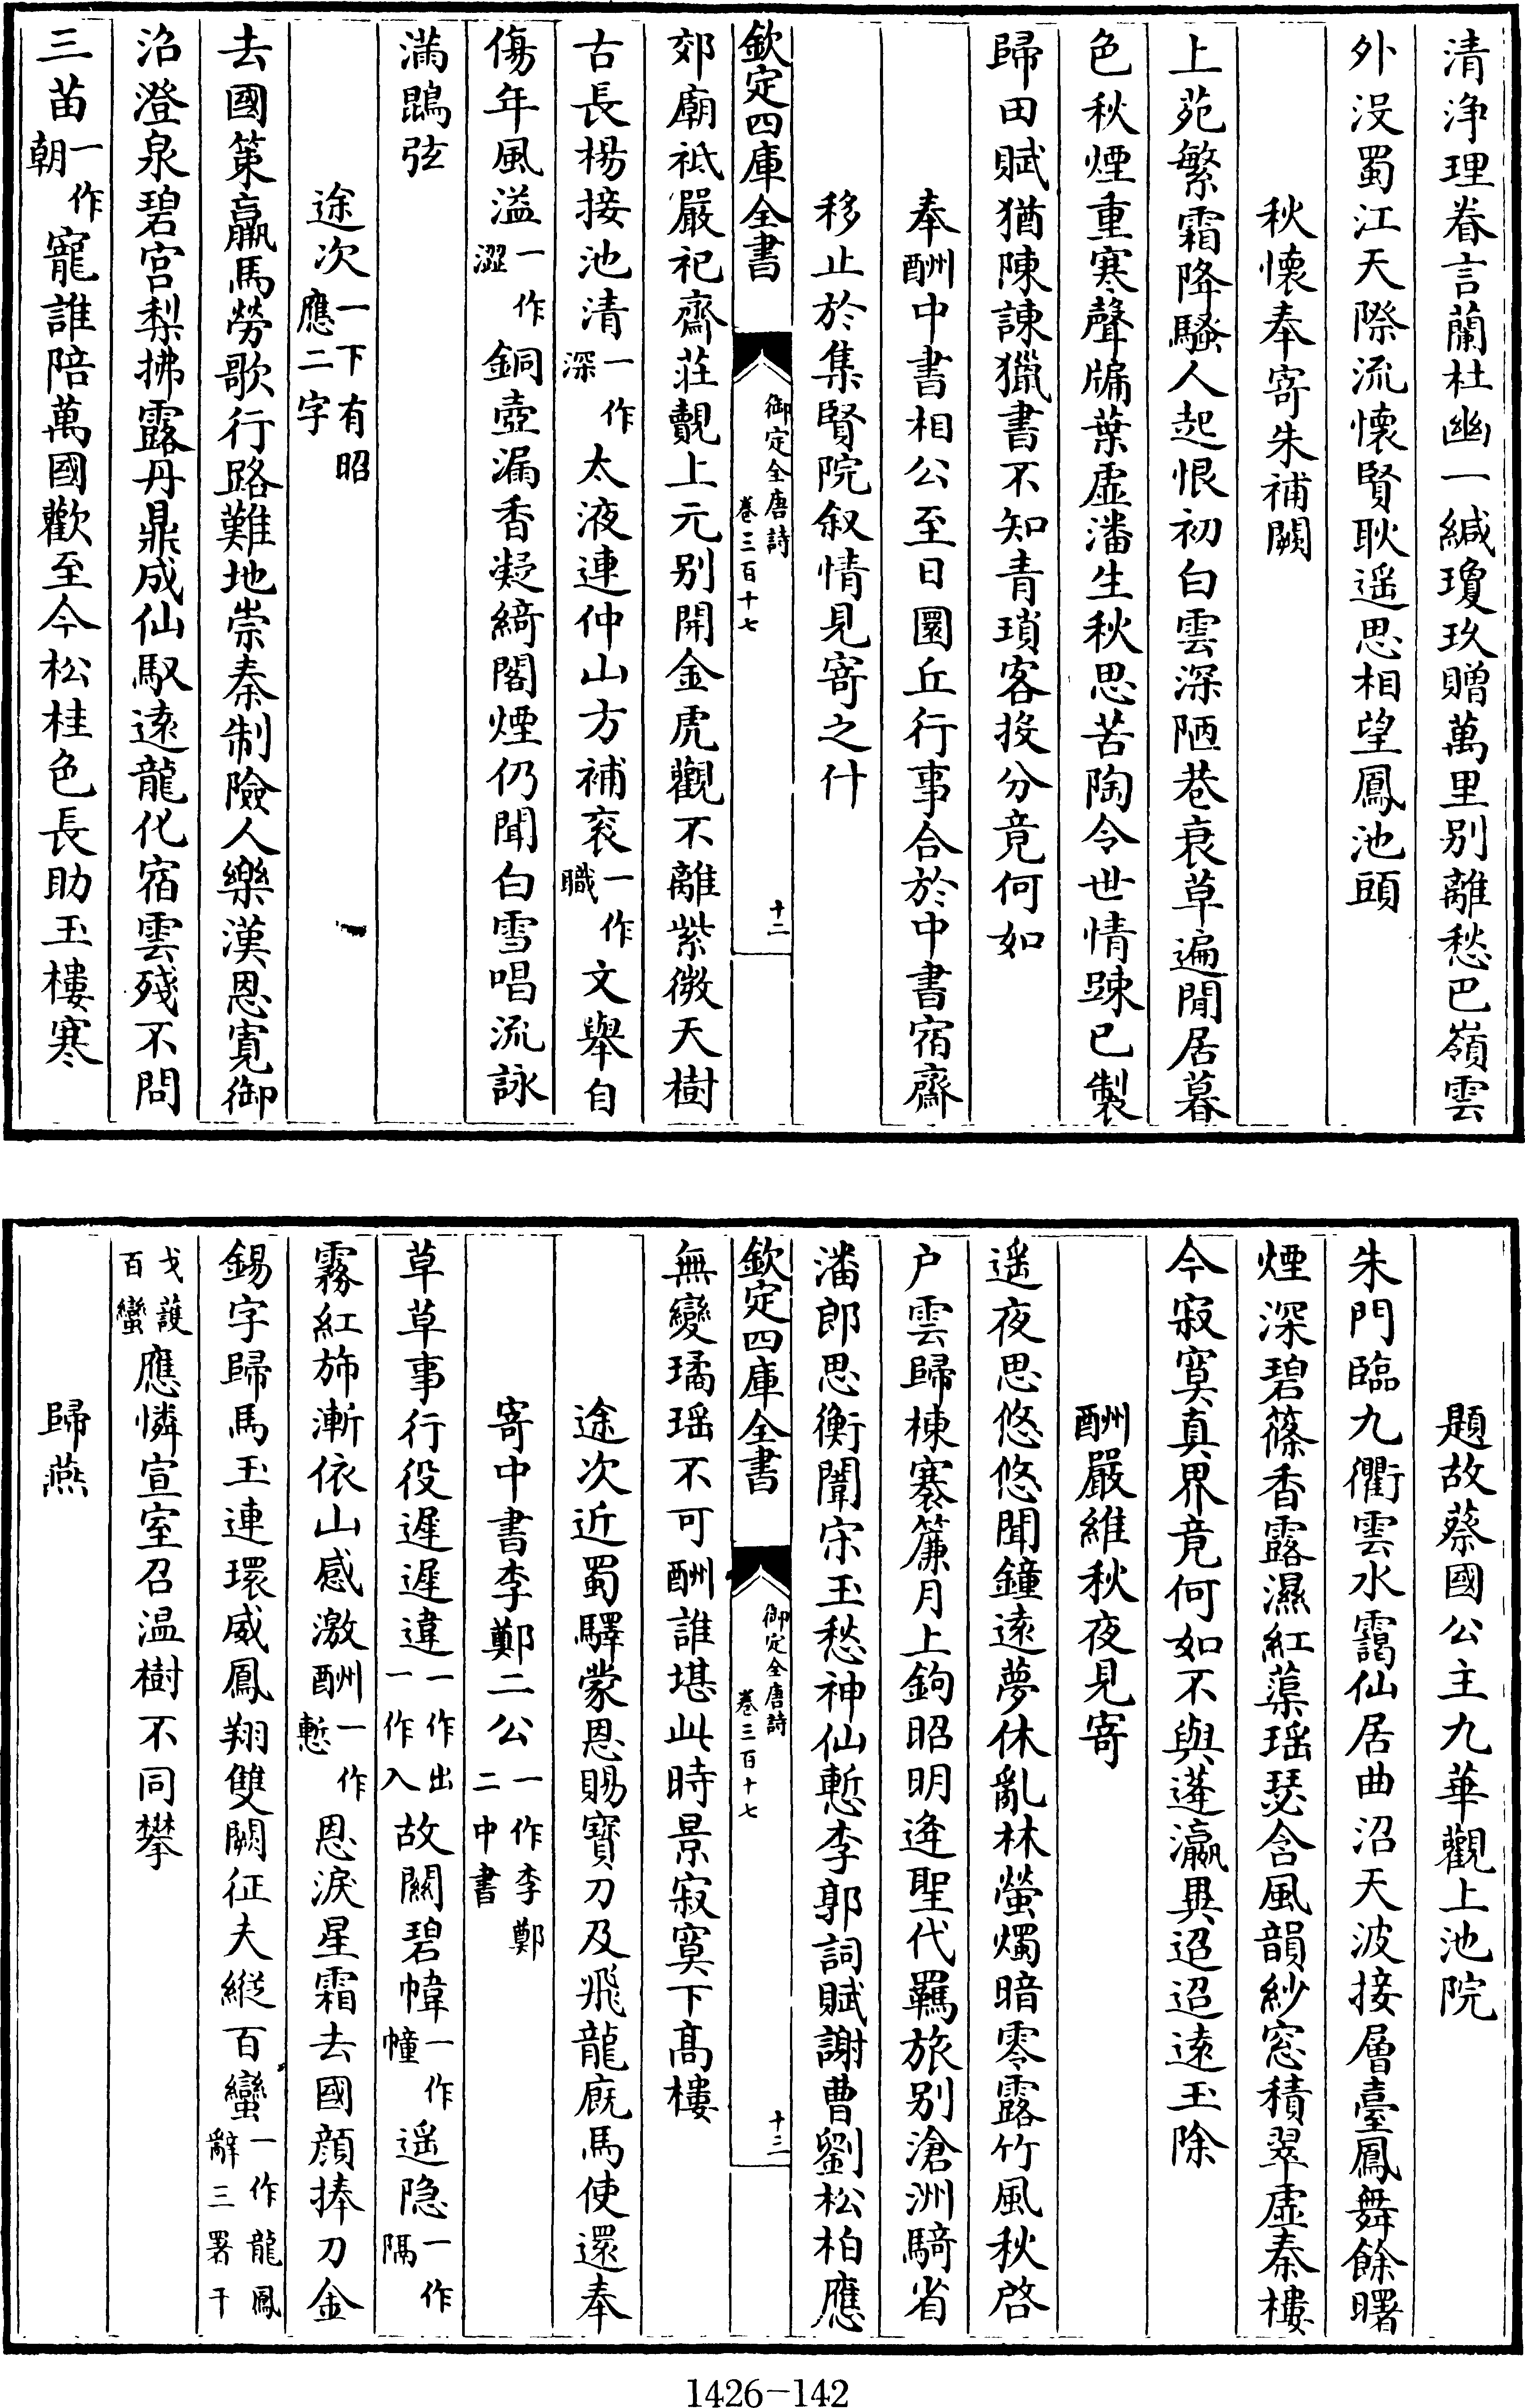 清浄理眷言蘭杜幽一緘瓊玖贈萬里别離愁巴嶺雲
外没蜀江天際流懷賢耿遥思相望鳳池頭
秋懷奉寄朱補闕
上苑繁霜降騷人起恨初白雲深陋巷衰草遍閒居暮
色秋煙重寒聲牖葉虛潘生秋思苦陶令世情踈已製
歸田賦猶陳諫獵書不知青瑣客投分竟何如
奉酬中書相公至日圜丘行事合於中書宿齋
移止於集賢院叙情見寄之什
欽定四庫全書
御定全唐詩
卷三百十七
十二
郊廟祗嚴祀齋莊覿上元别開金虎觀不離紫微天樹
古長楊接池清一作深太液連仲山方補衮一作職文舉自
傷年風溢一作澀銅壺漏香凝綺閣煙仍聞白雪唱流詠
滿鵾弦
途次一下有昭應二字
去國策羸馬勞歌行路難地崇秦制險人樂漢恩寛御
沼澄泉碧宫梨拂露丹鼎成仙馭遠龍化宿雲殘不問
三苗一作朝寵誰陪萬國歡至今松桂色長助玉樓寒
題故蔡國公主九華觀上池院
朱門臨九衢雲水靄仙居曲沼天波接層臺鳳舞餘曙
煙深碧篠香露濕紅蕖瑶瑟含風韻紗窓積翠虛秦樓
今寂寞真界竟何如不與蓬瀛異迢迢遠玉除
酬嚴維秋夜見寄
遥夜思悠悠聞鐘遠夢休亂林螢燭暗零露竹風秋啓
户雲歸棟褰簾月上鉤昭明逢聖代羈旅别滄洲騎省
潘郎思衡闈宋玉愁神仙慙李郭詞賦謝曹劉松柏應
欽定四庫全書
御定全唐詩
卷三百十七
十三
無變璚瑶不可酬誰堪此時景寂寞下髙樓
途次近蜀驛蒙恩賜寶刀及飛龍廐馬使還奉
寄中書李鄭二公一作李鄭二中書
草草事行役遲遲違一作出一作入故闗碧幃一作幢遥隐一作隔
霧紅斾漸依山感激酬一作慙恩淚星霜去國顔捧刀金
錫字歸馬玉連環威鳳翔雙闕征夫縱百蠻一作龍鳳辭三署干
戈護百蠻應憐宣室召温樹不同攀
歸燕
1426-142